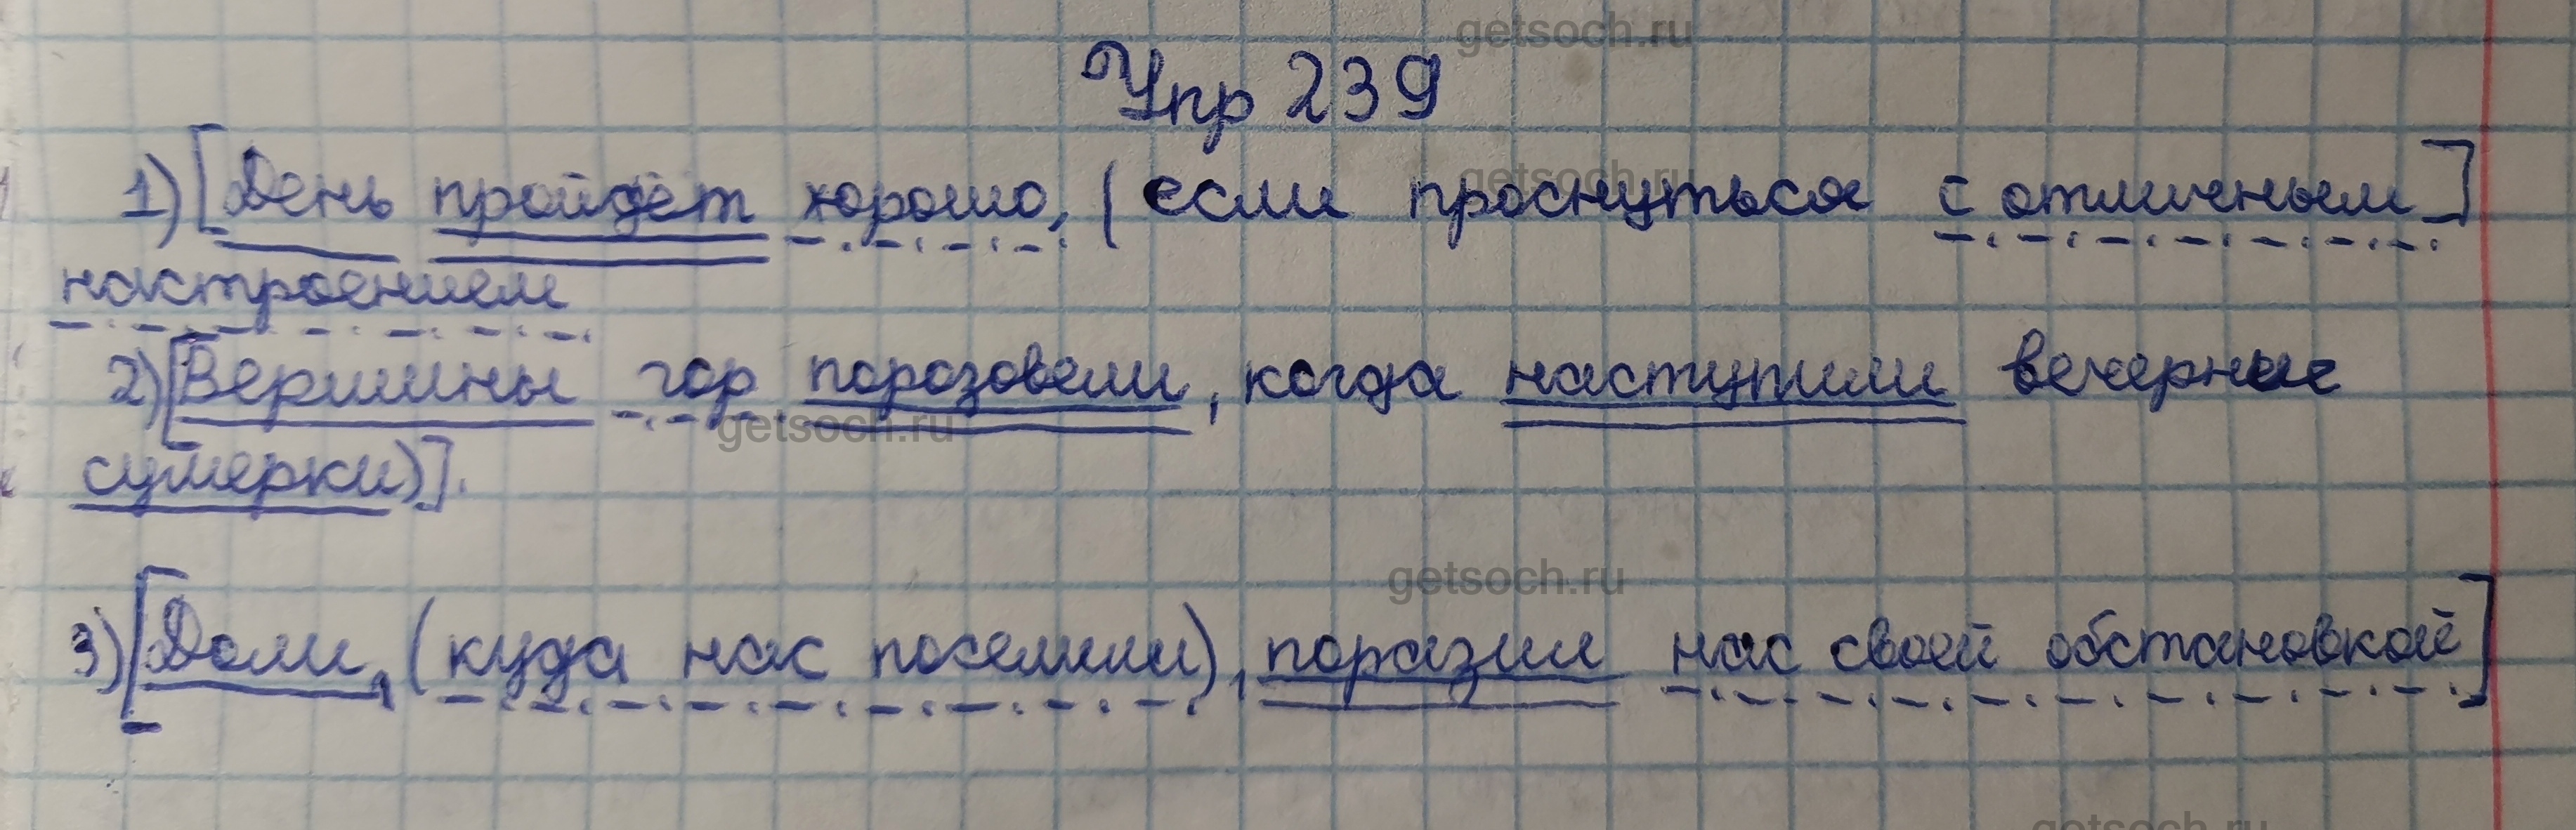 getsoch.ru
Упр 239
1) [День пройдёт хорошо, (если проснуться с отличным]
getsoch.ru
настроением
2) [Вершины гор порозовели, когда наступили вечерние
getsoch.ru
сумерки)].
getsoch.ru
3) [Дом, (куда нас поселили), поразил нас своей обстановкой]
getsoch.ru